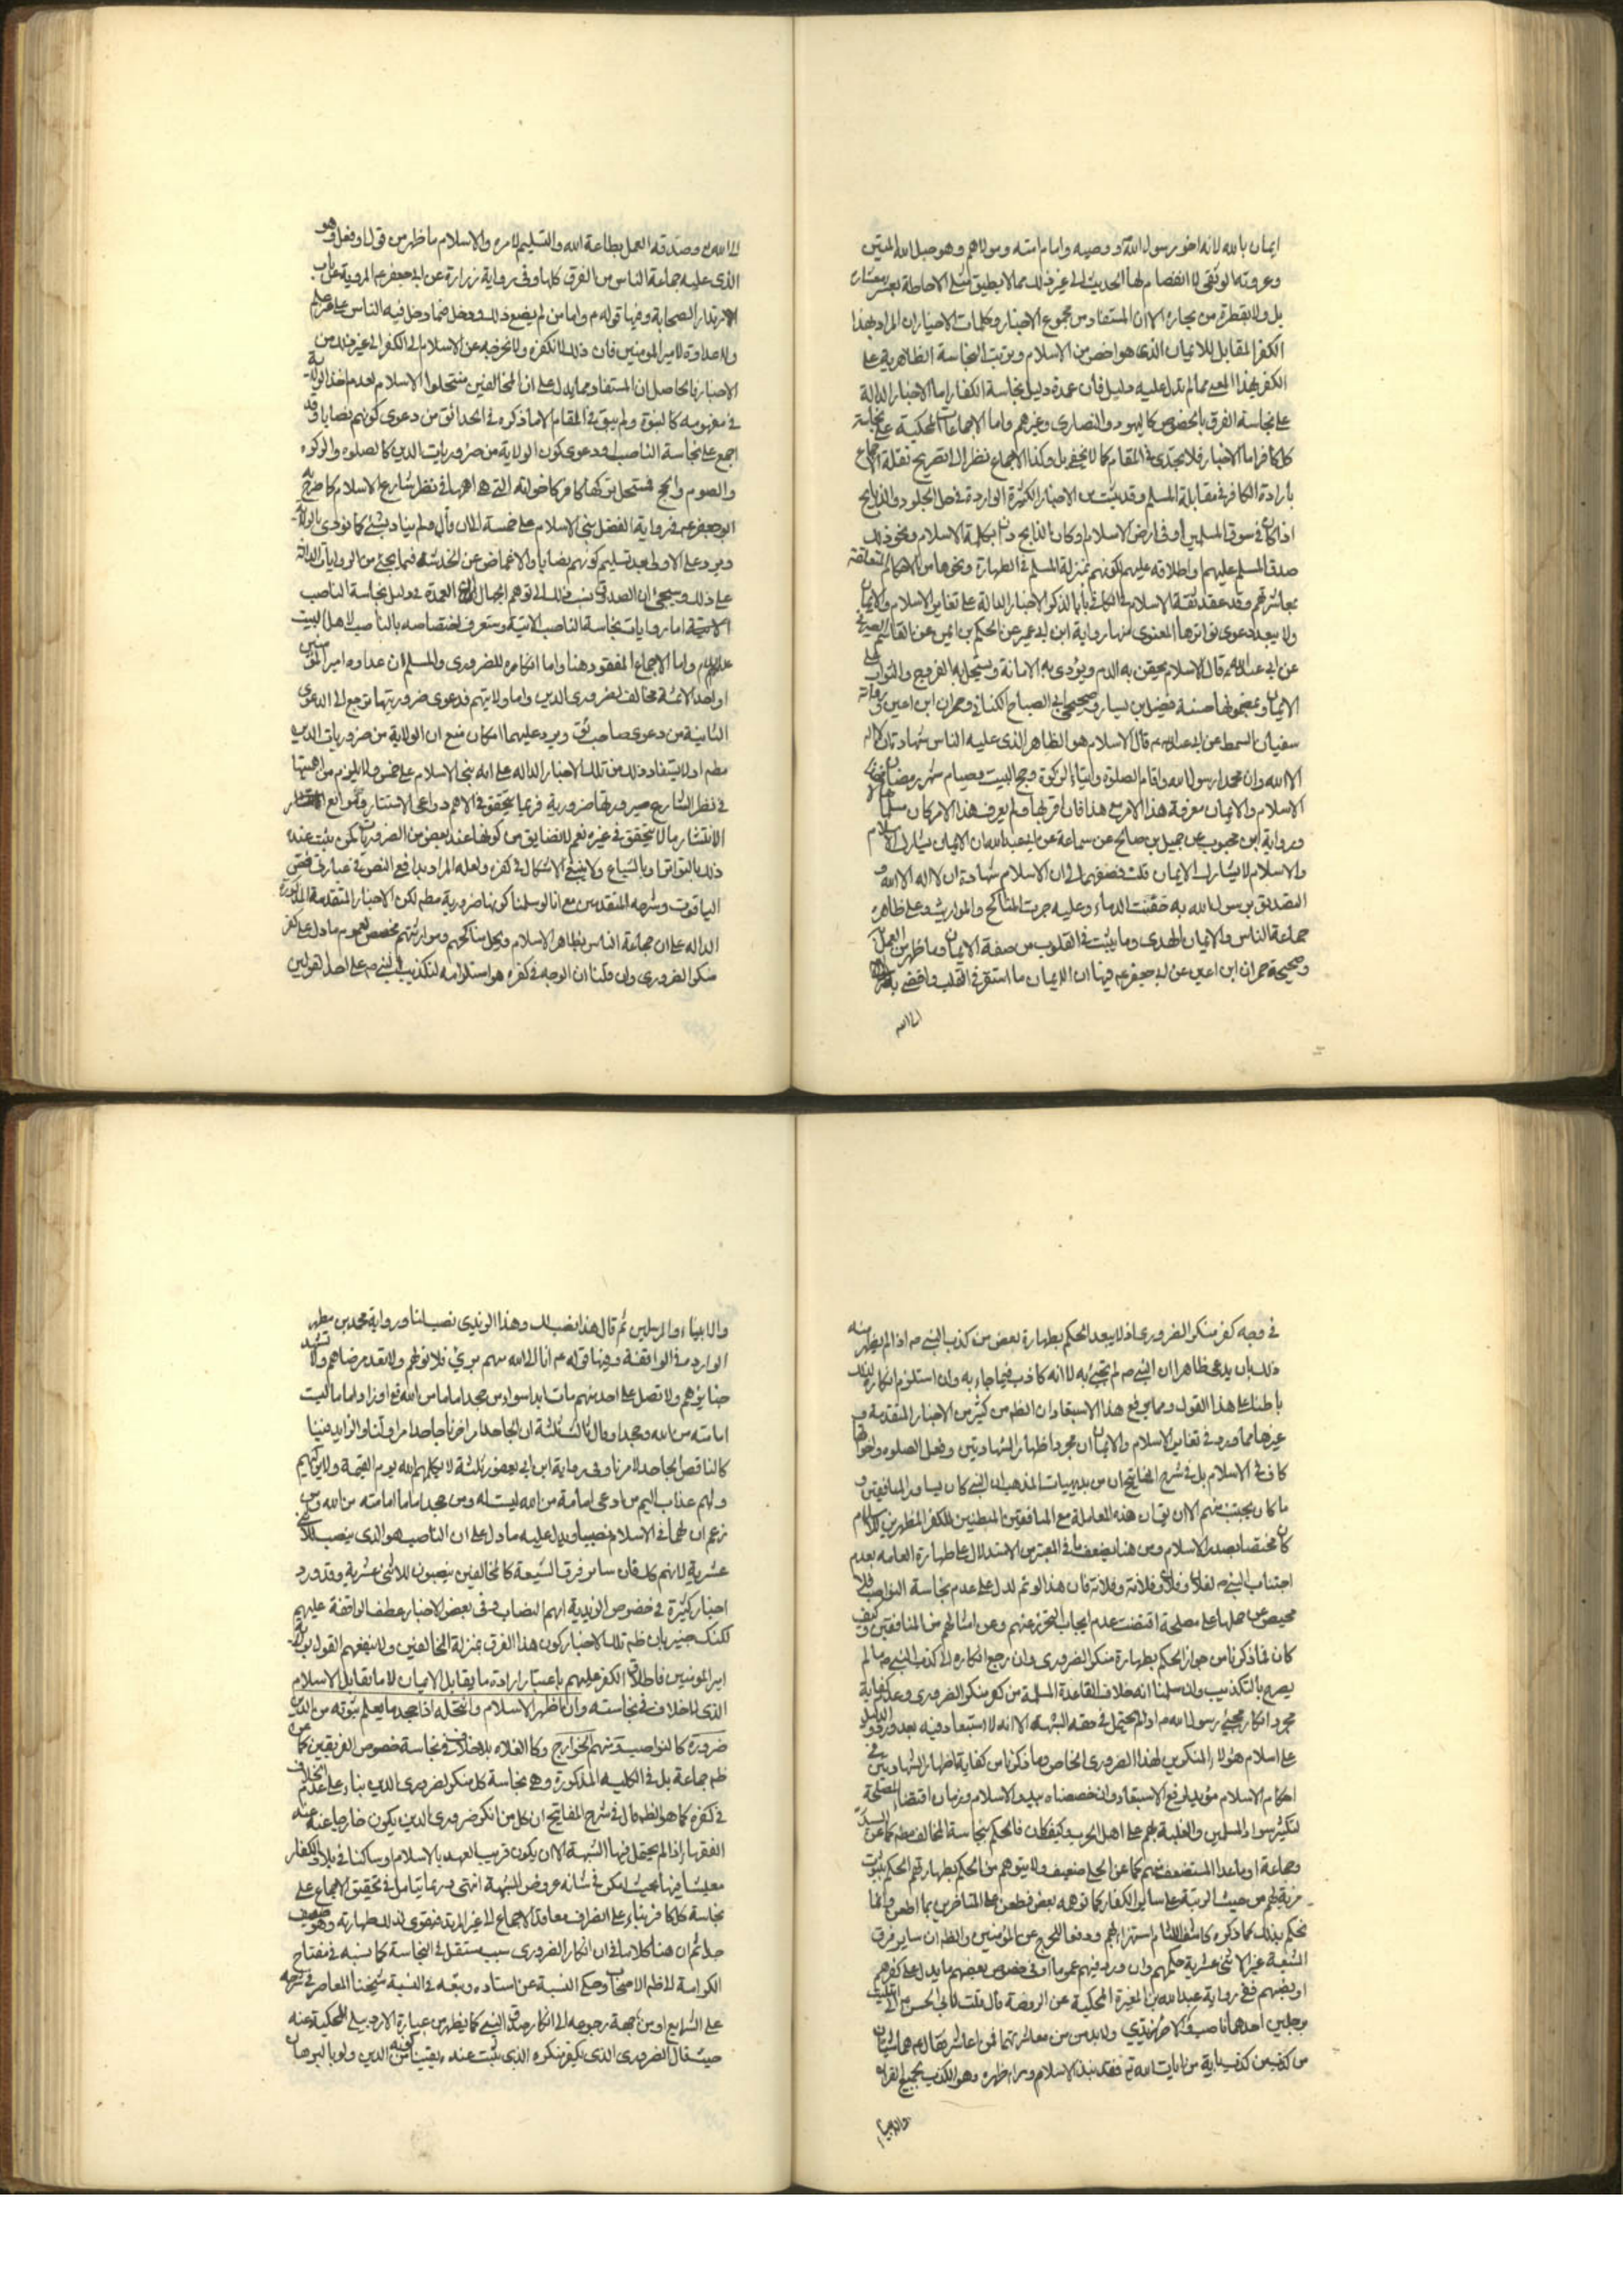 ايمان بالله لانه اخو رسول الله ووصيه وامام امته ومولاهم وهو حبل الله المتين
وعروته الوثقى لا انفصام لها الحديث الى غير ذلك مما لا يطيق مثلي الاحاطة بعشر معشاره
بل ولا بقطرة من بحاره الا ان المستفاد من مجموع الاخبار وكلمات الاخيار ان المراد بهذا
الكفر المقابل للايمان الذى هو اخص من الاسلام وترتب النجاسة الظاهرية على
الكفر بهذا المعنى مما لم تدل عليه دليل فان عمدة دليل نجاسة الكفار اما الاخبار الدالة
على نجاسة الفرق بالخصوص كاليهود والنصارى وغيرهم واما الاجماعات المحكية على نجاسة
كل كافر اما الاخبار فلا يجدى في المقام كما لا يخفى بل وكذا الاجماع نظرا الى تصريح نقلة الاجماع
بارادة الكافر في مقابلة المسلم وقد يثبت من الاخبار الكثيرة الواردة في حل الجلود والذبايح
اذا كان في سوق المسلمين او في ارض الاسلام وكان الذابح دان بكلمة الاسلام ونحو ذلك
صدق المسلم عليهم واطلاقه عليهم لكونهم بمنزلة المسلم في الطهارة ونحوها من الاحكام المتعلقة
بمعاشرتهم وقد عقد ثقة الاسلام في الكافي بابا لذكر الاخبار الدالة على تغاير الاسلام والايمان
ولا يبعد دعوى تواترها المعنوى منها رواية ابن ابي عمير عن الحكم بن ايمن عن القاسم الصيرفي
عن ابي عبد الله ع قال الاسلام يحقن به الدم ويؤدى به الامانة ويستحل به الفروج والثواب على
الايمان وبمضمونها حسنة فضيل بن يسار وصحيحتي ابي الصباح الكناني وحمران ابن اعين ورواية
سفيان السمط عن ابي عبد الله ع قال الاسلام هو الظاهر الذى عليه الناس شهادة ان لا اله
الا الله وان محمدا رسول الله واقام الصلوة وايتاء الزكوة وحج البيت وصيام شهر رمضان فهذا
الاسلام والايمان معرفة هذا الامر مع هذا فان اقر بها ولم يعرف هذا الامر كان مسلما ضالا
ورواية ابن محبوب عن جميل بن صالح عن سماعة عن ابي عبد الله ان الايمان يشارك الاسلام
والاسلام لا يشارك الايمان قلت فصفهما لي قال الاسلام شهادة ان لا اله الا الله و
التصديق برسول الله به حقنت الدماء وعليه جرت المناكح والمواريث وعلى ظاهره
جماعة الناس والايمان الهدى وما يثبت في القلوب من صفة الايمان وما ظهر من العمل
وصحيحة حمران ابن اعين عن ابي جعفر ع فيها ان الايمان ما استقر في القلب وافضى به
الى الله
الى الله ع وصدقه العمل بطاعة الله والتسليم لامره والاسلام ما ظهر من قول او فعل وهو
الذى عليه جماعة الناس من الفرق كلها وفي رواية زرارة عن ابي جعفر ع المروية في باب
الارتداد الصحابة وفيها قوله ع واما من لم يضع ذلك ودخل فيما دخل فيه الناس على غير علم
ولا عداوة لامير المؤمنين فان ذلك لا يكفره ولا يخرجه عن الاسلام الى الكفر الى غير ذلك من
الاخبار فالحاصل ان المستفاد مما يدل على ان المخالفين منتحلوا الاسلام لعدم اخذ الولاية
في مفهومه كالنبوة ولم يبق في المقام الا ما ذكره في الحدائق من دعوى كونهم نصابا وقد
اجمع على نجاسة الناصب ودعوى كون الولاية من ضروريات الدين كالصلوة والزكوة
والصوم والحج فمستحل تركها كافر كاخواته التي هي اهمها في نظر شارع الاسلام كما صرح به
ابو جعفر ع في رواية الفضل بني الاسلام على خمسة الى ان قال ولم يناد بشئ كما نودى بالولاية
ويرد على الاول بعد تسليم كونهم نصابا والاغماض عن الخدشة فيما يجئ من الروايات الدالة
على ذلك وسيجئ ان الصدوق نسب ذلك الى توهم الجهال العمدة في دليل نجاسة الناصب
اما روايات نجاسة الناصب الاتية وستعرف اختصاصه بالناصب لاهل البيت
عليهم واما الاجماع المفقود هنا واما انكاره للضرورى والمسلم ان عداوة امير المؤمنين
او احد الائمة مخالف لضرورى الدين واما ولايتهم فدعوى ضروريتها ترجع الى الدعوى
الثانية من دعوى صاحب ئق ويرد عليهما امكان منع ان الولاية من ضروريات الدين
مطم اولا يستفاد ذلك من تلك الاخبار الداله على انه بنى الاسلام على خمس ولا يلزم من اهميتها
في نظر الشارع صيرورتها ضرورية فربما يتحقق في الاهم دواعى الاستتار وموانع
الانتشار ما لا يتحقق في غيره نعم لا نضايق من كونها عند بعض من الضروريات لمن يثبت عنده
ذلك بالتواتر او بالشياع ولا ينبغي الاشكال في كفره ولعله المراد بدافع النص في عبارتى فص
الياقوت وشرحه المتقدمين مع انا لو سلمنا كونها ضرورية مطم لكن الاخبار المتقدمة المذكورة
الداله على ان جماعة الناس بظاهر الاسلام وبحل مناكحهم ومواريثهم مخصص لعموم ما دل على كفر
منكر الضرورى وان قلنا ان الوجه في كفره هو استلزامه لتكذيب النبي ص على احد القولين
في وجه كفر منكر الضرورى اذ لا يبعد الحكم بطهارة بعض من كذب النبي ص اذا لم يظهر منه
ذلك بان يدعى ظاهرا ان النبي ص لم يجئ به لا انه كاذب فيما جاء به وان استلزم انكاره ذلك
باطنا على هذا القول ومما يرفع هذا الاستبعاد ان الظم من كثير من الاخبار المتقدمة و
غيرها مما ورد في تغاير الاسلام والايمان ان مجرد اظهار الشهادتين وفعل الصلوة واخواتها
كاف في الاسلام بل في شرح المفاتيح ان من بديهيات المذهب ان النبي كان يساور المنافقين و
ما كان يجتنب منهم الا ان يقال هذه المعاملة مع المنافقين المبطنين للكفر المظهرين للاسلام
كان مختصا بصدر الاسلام ومن هنا يضعف ما في المعتبر من الاستدلال على طهارة العامه بعدم
اجتناب النبي ص لفلان وفلان وفلانة وفلانة فان هذا لو تم لدل على عدم نجاسة النواصب فلا
محيص عن حملها على مصلحة اقتضت عدم ايجاب التحرز عنهم وعن امثالهم من المنافقين وكيف
كان فما ذكرنا من جواز الحكم بطهارة منكر الضرورى وان رجع انكاره الى كذب النبي ص ما لم
يصرح بالتكذيب وان سلمنا انه خلاف القاعدة المسلمة من كفر منكر الضرورى وعدم كفاية
مجرد انكار مجئ رسول الله ص اذا لم يحتمل في حقه الشبهة الا انه لا استبعاد فيه بعد ورود الدليل
على اسلام هؤلاء المنكرين لهذا الضرورى الخاص وما ذكرنا من كفاية اظهار الشهادتين في
احكام الاسلام مؤيد لرفع الاستبعاد وان خصصناه ببدو الاسلام وزمان اقتضاء المصلحة
لتكثير سواد المسلمين والغلبة بهم على اهل الحرب وكيف كان فالحكم بنجاسة المخالف مطم كما عن السيد
وجماعة او ما عدا المستضعف منهم كما عن الحلي ضعيف ولا يتوهم من الحكم بطهارتهم الحكم بثبوت
مزية لهم من حيث الرتبة على ساير الكفار كما توهمه بعض فطعن على المتاخرين بما اطعن وانما
نحكم بذلك كما ذكره كاشف اللثام استهزاء بهم ودفعا للحرج عن المؤمنين والظم ان ساير فرق
الشيعة غير الاثنى عشرية حكمهم وان ورد فيهم عموما او في خصوص بعضهم ما يدل على كفرهم
او نصبهم ففي رواية عبد الله بن المغيرة المحكية عن الروضة قال قلت لابي الحسن ع اني ابتليت
برجلين احدهما ناصب والاخر زيدي ولا بد من معاشرتهما فمن اعاشر فقال ع هما سيان
من كذب بكذب باية من ايات الله تع فقد نبذ الاسلام وراء ظهره وهو المكذب بجميع القران
والانبياء
والانبياء والمرسلين ثم قال هذا نصب لك وهذا الزيدى نصب لنا ورواية محمد بن مطهر
الواردة في الواقفة وفيها قوله ع انا الى الله منهم برئ فلا تولهم ولا تعد مرضاهم ولا تشهد
جنايزهم ولا تصل على احد منهم مات ابدا سواء من جحد اماما من الله تع او زاد اماما ليست
امامته من الله وجحد او قال ثالث ثلثة ان الجاحد امر اخرنا جاحد امر اولنا والزايد فينا
كالناقص الجاحد لامرنا وفي رواية ابن ابي يعفور ثلثة لا يكلمهم الله يوم القيمة ولا يزكيهم
ولهم عذاب اليم من ادعى امامة من الله ليست له ومن جحد اماما امامته من الله ومن
زعم ان لهما في الاسلام نصيبا ويدل عليه ما دل على ان الناصب هو الذى ينصب للاثنى
عشرية لانهم كك فان ساير فرق الشيعة كالمخالفين ينصبون للاثنى عشرية وقد ورد
اخبار كثيرة في خصوص الزيدية انهم النصاب وفي بعض الاخبار عطف الواقفة عليهم
لكنك خبير بان ظم تلك الاخبار كون هذا الفرق بمنزلة المخالفين ولا ينفعهم القول بولاية
امير المؤمنين فاطلاق الكفر عليهم باعتبار ارادة ما يقابل الايمان لا ما يقابل الاسلام
الذى لا خلاف في نجاسته وان اظهر الاسلام وانتحله اذا جحد ما يعلم ثبوته من الدين
ضرورة كالنواصب ومنهم الخوارج وكا الغلاة بلا خلاف في نجاسة خصوص الفريقين كما عن
ظم جماعة بل في الكلية المذكورة وهى نجاسة كل منكر لضرورى الدين بناء على عدم الخلاف
في كفره كما هو الظم قال في شرح المفاتيح ان كل من انكر ضرورى الدين يكون خارجا عنه عند
الفقهاء اذا لم يحتمل فيها الشبهة الا ان يكون قريب العهد بالاسلام او ساكنا في بلاد الكفار
معيشا فيها بحيث امكن في شانه عروض الشبهة انتهى وربما يتامل في تحقيق الاجماع على
نجاسة كل كافر بناء على انصراف معاقد الاجماع الى غير المرتد فيقوى لذلك طهارته وهو ضعيف
جدا ثم ان هنا كلاما في ان انكار الضرورى سبب مستقل في النجاسة كما نسبه في مفتاح
الكرامة الى ظم الاصحاب وحكى النسبة عن استاده وتبعه في النسبة شيخنا المعاصر في شرحه
على الشرايع او من جهة رجوعه الى انكار صدق النبي كما يظهر من عبارة الاردبيلى المحكية عنه
حيث قال الضرورى الذى يكفر منكره الذى ثبت عنده يقينا كونه من الدين ولو بالبرهان